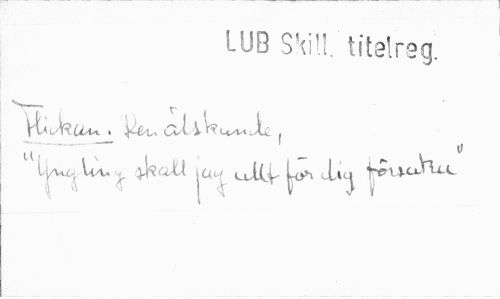 LUB Skill. titelreg.
Flickan. Den älskande,
"Yngling skall jag allt för dig försaka"